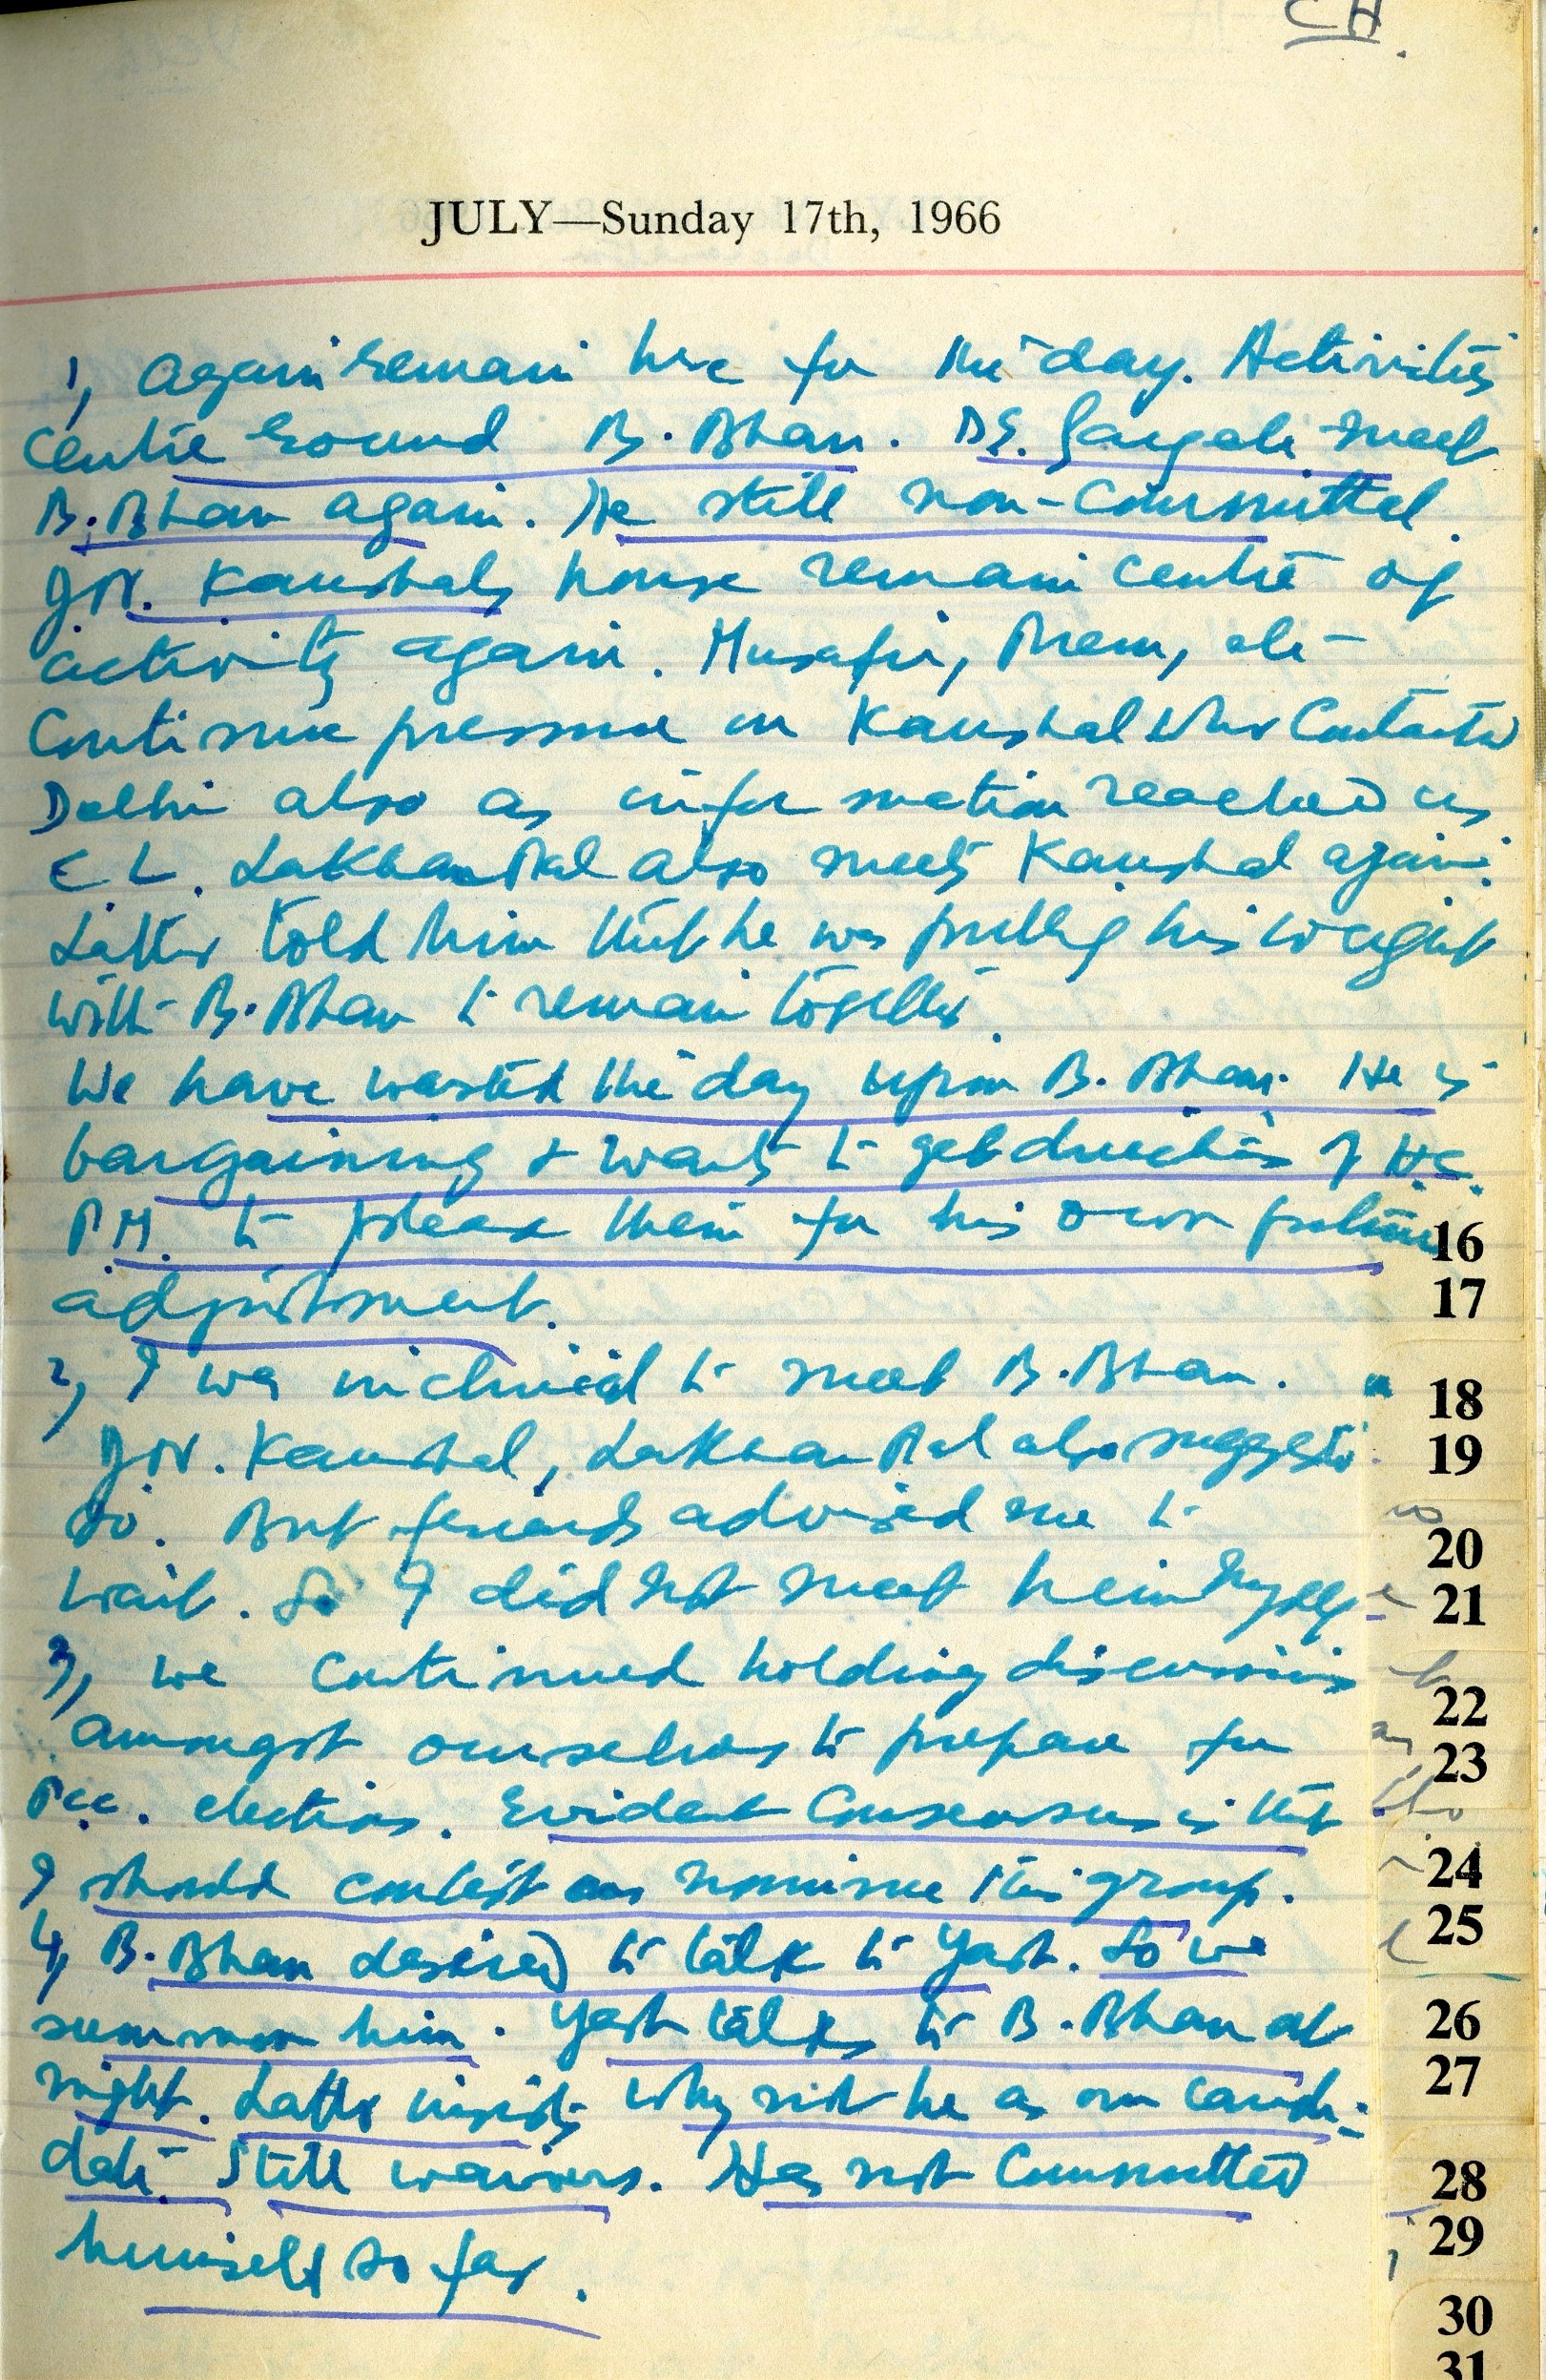 CH.
JULY—Sunday 17th, 1966
1, Again remain here for the day. Activities
centre round B. Bhan. meet
B. Bhan again. He still non-committal.
J.N. Kaushals house remain centre of
activity again. Musafir, Prem, etc
continue pressure on Kaushal who contacted
Delhi also as information reached us
C L. Lakhanpal also meets Kaushal again.
Latter told him that he was putting his weight
with B. Bhan to remain together.
We have wasted the day upon B. Bhan. He is
bargaining & wants to get directions of H.C.
P.M. to please them for his own future
adjustment.
2, I was inclined to meet B. Bhan.
J.N. Kaushal, Lakhanpal also suggested
so. But friends advised me to
wait. So I did not meet him myself
3, we continued holding discussions
amongst ourselves to prepare for
P.C.C. elections. Evident consensus is that
I should contest as nominee this group.
4, B. Bhan desired to talk to Yash. So we
summon him. Yash talks to B. Bhan at
night. Latter insists why not he as our candi-
date. Still waivers. Has not committed
himself so far.
16
17
18
19
20
21
22
23
24
25
26
27
28
29
30
31